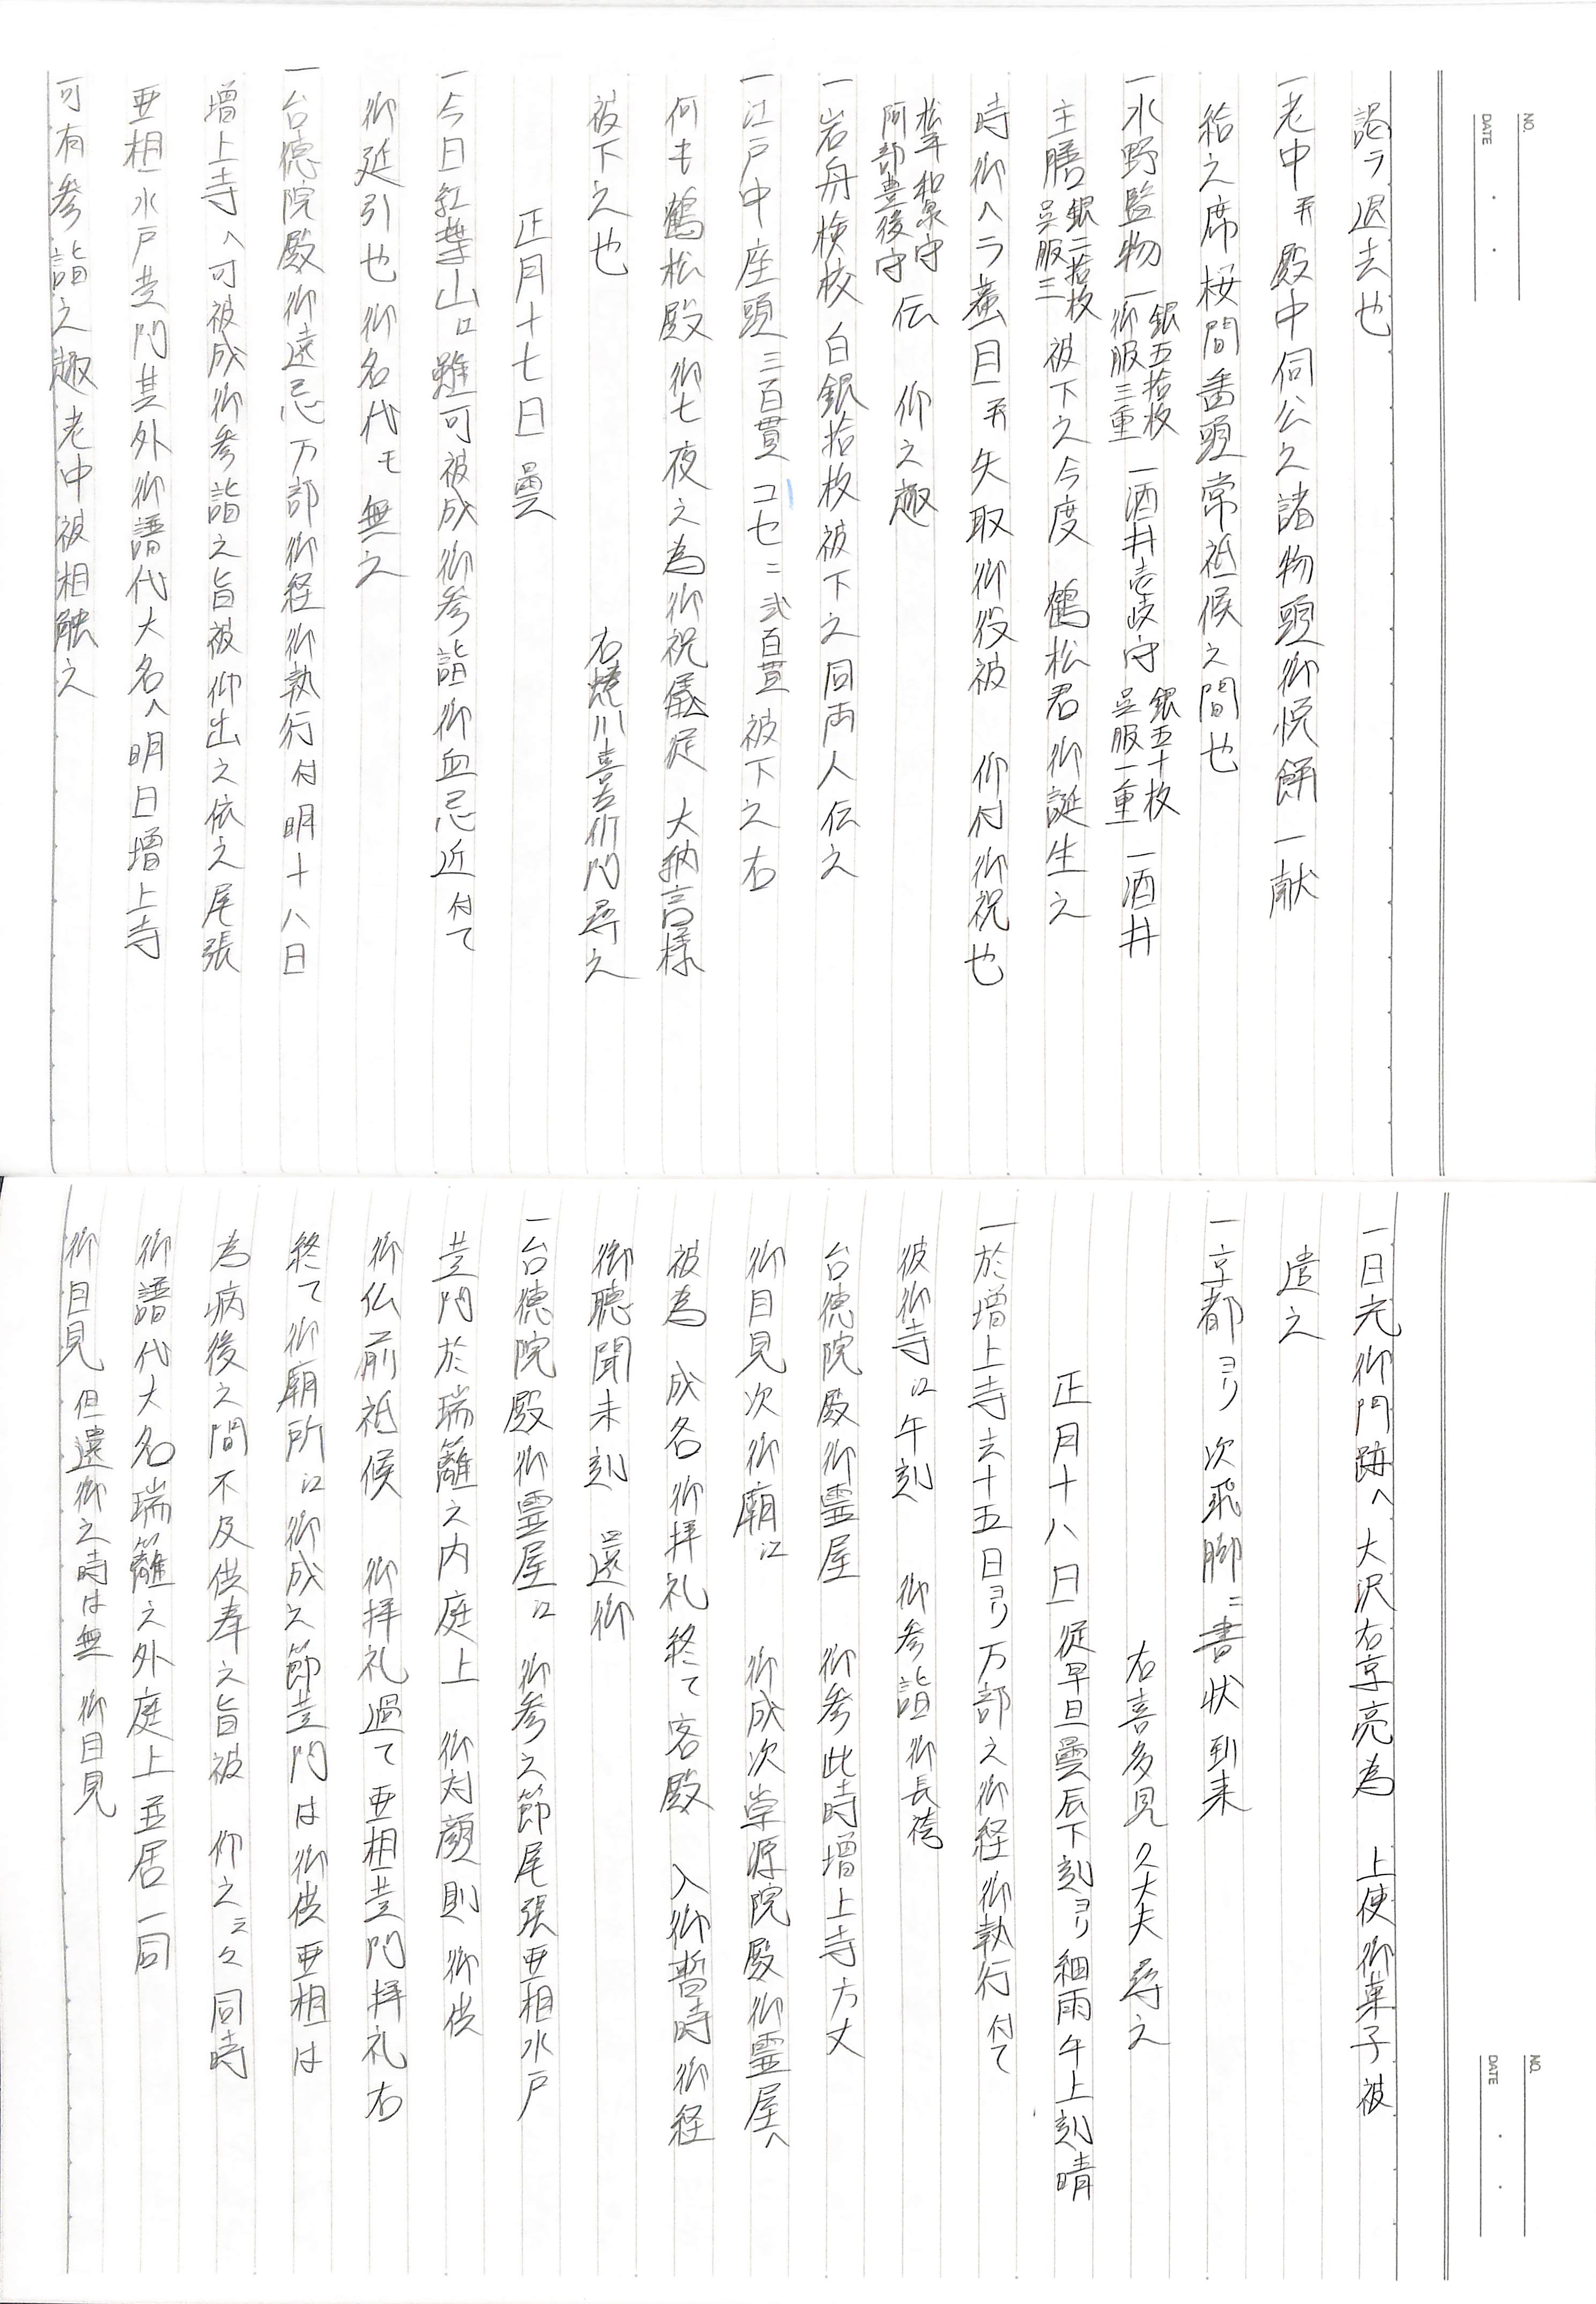 NO.
DATE
謁ラ退去也
一老中并殿中伺公之諸物頭御悦餅一献
給之席桜間番頭常祗候之間也
一水野監物 銀五拾枚 御服三重 一酒井壱岐守 銀五十枚 呉服一重 一酒井
主膳 銀二拾枚 呉服三 被下之今度 鶴松君御誕生之
時御ヘラ蟇目并矢取御役被 仰付御祝也
松平和泉守 阿部豊後守 伝 仰之趣
一岩舟検校白銀拾枚被下之同両人伝之
一江戸中座頭三百貫コセニ弐百貫被下之右
何も鶴松殿御七夜之為御祝儀従 大納言様
被下之也 右蜷川喜右衛門尋之
正月十七日 曇
一今日紅葉山江雖可被成御参詣御血忌近付て
御延引也御名代モ無之
一台徳院殿御遠忌万部御経御執行付明十八日
増上寺へ可被成御参詣之旨被仰出之依之尾張
亜相水戸黄門其外御譜代大名へ明日増上寺
可有参詣之趣老中被相触之
NO.
DATE
一日光御門跡へ大沢右京亮為 上使御菓子被
遣之
一京都ヨリ次飛脚ニ書状到来
右喜多見久大夫尋之
正月十八日 従早旦曇辰下刻ヨリ細雨午上刻晴
一於増上寺去十五日ヨリ万部之御経御執行付て
彼御寺江午刻 御参詣御長袴
台徳院殿御霊屋 御参此時増上寺方丈
御目見次御廟江 御成次崇源院殿御霊屋へ
被為 成各御拝礼終て客殿 入御暫時御経
御聴聞未刻 還御
一台徳院殿御霊屋江 御参之節尾張亜相水戸
黄門於瑞籬之内庭上 御対顔則御供
御仏前祗候 御拝礼過て亜相黄門拝礼右
終て御廟所江御成之節黄門は御供亜相は
為病後之間不及供奉之旨被 仰之云々同時
御譜代大名瑞籬之外庭上並居一同
御目見 但還御之時は無 御目見